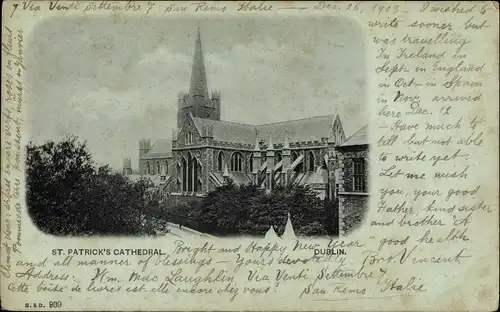 7 Via Venti Settembre 7 San Remo Italie — Dec. 26, 1903 —
I meaned to
write sooner but
was travelling
In Ireland in
Sept - in England
in Oct - in Spain
in Nov arrived
here Dec. 12
- Have much to
tell - but not able
to write yet.
Let me wish
you, your good
Father, and sister
and brother A
good health
Bright and happy New Year
and all manner of blessings - Yours devotedly
Bro. Vincent
Address: Wm. Mac Laughlin Via Venti Settembre 7
Cette boite de livres est-elle encore chez vous? San Remo Italie
ST. PATRICK'S CATHEDRAL
DUBLIN.
S. & D. 989